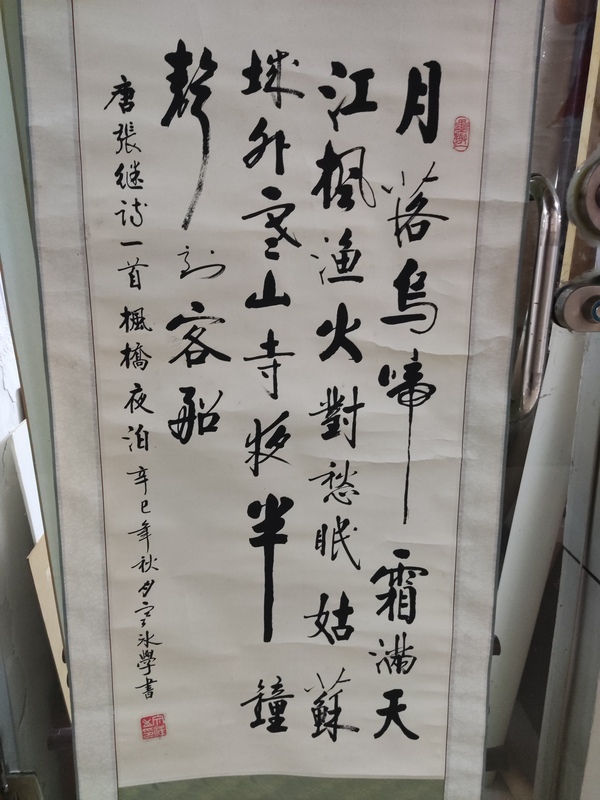 月落烏啼霜滿天
江楓漁火對愁眠姑蘇
城外寒山寺夜半鐘
聲到客船
唐張继诗一首楓橋夜泊辛巳年秋月宇冰學書